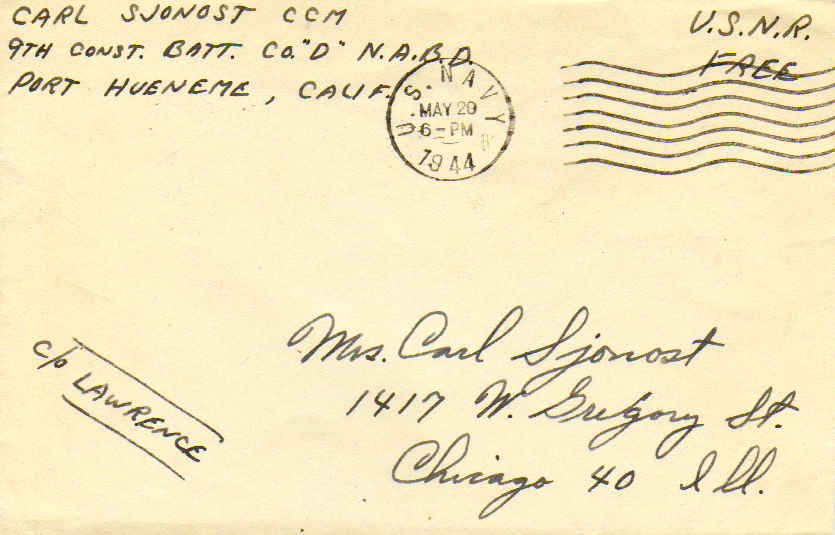 CARL SJONOST CCM
9TH CONST. BATT. CO. "D" N.A.B.D.
PORT HUENEME, CALIF.
U.S.N.R.
FREE
U.S. NAVY
MAY 29
6-PM
1944
Mrs. Carl Sjonost
1417 W. Gregory St.
Chicago 40 Ill.
c/o LAWRENCE